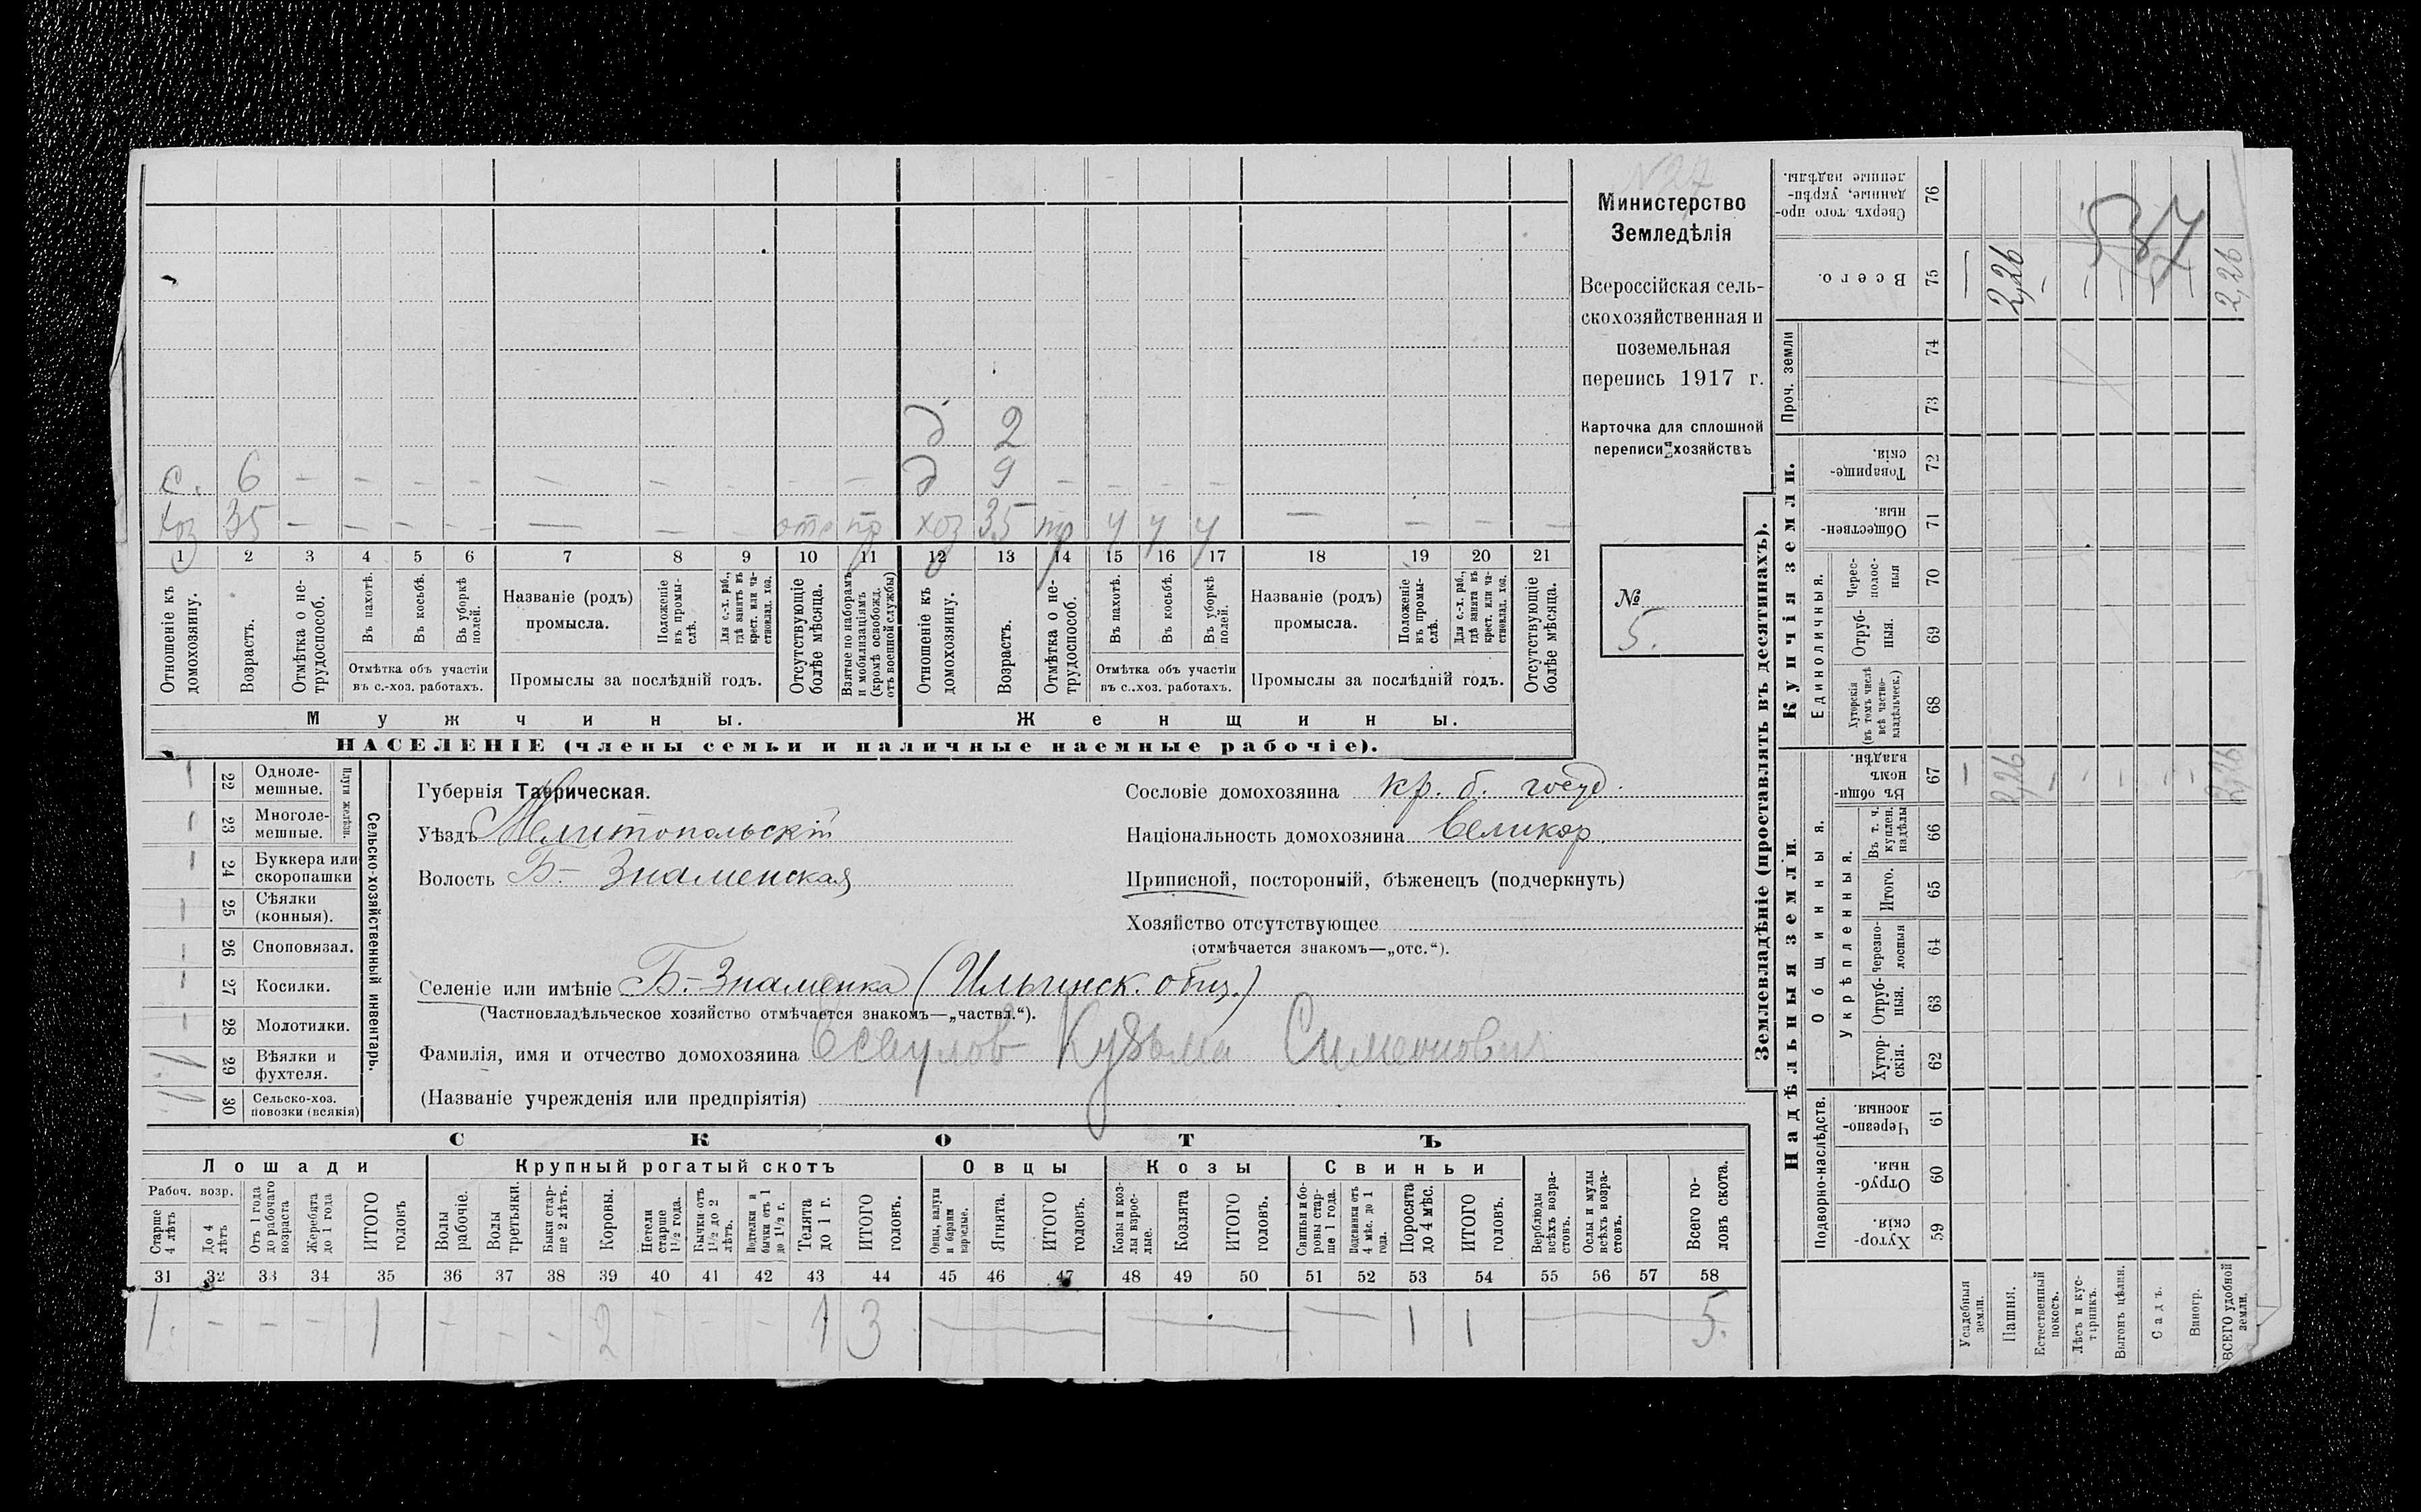 № 27
Министерство
Земледѣлія
Всероссійская сель-
скохозяйственная и
поземельная
перепись 1917 г.
Карточка для сплошной
переписи хозяйствъ
№
5.
д 2
с. 6 — — — — — — — — — д 9 — — — —
хоз 35 — — — — — — — отс пр хоз 35 пр у у у — — — —
1 2 3 4 5 6 7 8 9 10 11 12 13 14 15 16 17 18 19 20 21
Отношеніе къ домохозяину.
Возрастъ.
Отмѣтка о не-трудоспособ.
Въ пахотѣ.
Въ косьбѣ.
Въ уборкѣ полей.
Отмѣтка объ участіи
въ с.-хоз. работахъ.
Названіе (родъ)
промысла.
Положеніе въ промы-слѣ.
Для с.-х. раб., гдѣ занятъ въ крест. или ча-стновлад. хоз.
Промыслы за послѣдній годъ.
Отсутствующіе болѣе мѣсяца.
Взятые по наборамъ и мобилизаціямъ (кромѣ освобожд. отъ военной службы)
Отношеніе къ домохозяину.
Возрастъ.
Отмѣтка о не-трудоспособ.
Въ пахотѣ.
Въ косьбѣ.
Въ уборкѣ полей.
Отмѣтка объ участіи
въ с..хоз. работахъ.
Названіе (родъ)
промысла.
Положеніе въ промы-слѣ.
Для с.-х. раб., гдѣ занята въ крест. или ча-стновлад. хоз.
Промыслы за послѣдній годъ.
Отсутствующіе болѣе мѣсяца.
Мужчины. Женщины.
НАСЕЛЕНІЕ (члены семьи и наличные наемные рабочіе).
Сельско-хозяйственный инвентарь.
Плуги желѣзн.
22 Одноле-мешные. —
23 Многоле-мешные. —
24 Буккера или скоропашки —
25 Сѣялки (конныя). —
26 Сноповязал. —
27 Косилки. —
28 Молотилки. —
29 Вѣялки и фухтеля.
30 Сельско-хоз. повозки (всякія)
Губернія Таврическая.
Уѣздъ Мелитопольскій
Волость Б- Знаменская
Сословіе домохозяина кр. б. госуд.
Національность домохозяина великор.
Приписной, посторонній, бѣженецъ (подчеркнуть)
Хозяйство отсутствующее
(отмѣчается знакомъ—„отс.“).
Селеніе или имѣніе Б.-Знаменка (Ильинск. общ.)
(Частновладѣльческое хозяйство отмѣчается знакомъ—„частвл.“).
Фамилія, имя и отчество домохозяина Есаулов Кузьма Симеонович
(Названіе учрежденія или предпріятія)
СКОТЪ
Лошади Крупный рогатый скотъ Овцы Козы Свиньи
Рабоч. возр.
Старше 4 лѣтъ
До 4 лѣтъ
Отъ 1 года до рабочаго возраста
Жеребята до 1 года
ИТОГО головъ
Волы рабочіе.
Волы третьяки.
Быки стар-ше 2 лѣтъ.
Коровы.
Нетели старше 1½ года.
Бычки отъ 1½ до 2 лѣтъ.
Подтелки и бычки отъ 1 до 1½ г.
Телята до 1 г.
ИТОГО головъ.
Овцы, валухи и бараны взрослые.
Ягнята.
ИТОГО головъ.
Козы и коз-лы взрос-лые.
Козлята
ИТОГО головъ.
Свиньи и бо-ровы стар-ше 1 года.
Подсвинки отъ 4 мѣс. до 1 года.
Поросята до 4 мѣс.
ИТОГО головъ.
Верблюды всѣхъ возра-стовъ.
Ослы и мулы всѣхъ возра-стовъ.
Всего го-ловъ скота.
31 32 33 34 35 36 37 38 39 40 41 42 43 44 45 46 47 48 49 50 51 52 53 54 55 56 57 58
1. — — — 1 — — — 2 — — — 1 3 — — — 1 1 — 5.
Землевладѣніе (проставлять въ десятинахъ).
Надѣльныя земли. Купчія земли. Проч. земли
Подворно-наслѣдств. Общинныя. Укрѣпленныя. Единоличныя.
59 Хутор-скія.
60 Отруб-ныя.
61 Черезпо-лосныя.
62 Хутор-скія.
63 Отруб-ныя.
64 Черезпо-лосныя
65 Итого.
66 Въ т. ч. куплен. надѣлы
67 Въ общи-номъ владѣн.
68 Хуторскія (въ томъ числѣ всѣ частно-владѣльческ.)
69 Отруб-ныя.
70 Черес-полос-ныя
71 Обществен-ныя.
72 Товарище-скія.
73
74
75 Всего.
76 Сверхъ того про-данные, укрѣп-ленные надѣлы.
Усадебныя земли. — —
Пашня. 2,26 2,26
Естественный покосъ. — —
Лѣсъ и кус-тарникъ. — —
Выгонъ цѣлин. — —
Садъ. — —
Виногр. — —
ВСЕГО удобной земли. 2,26 2,26